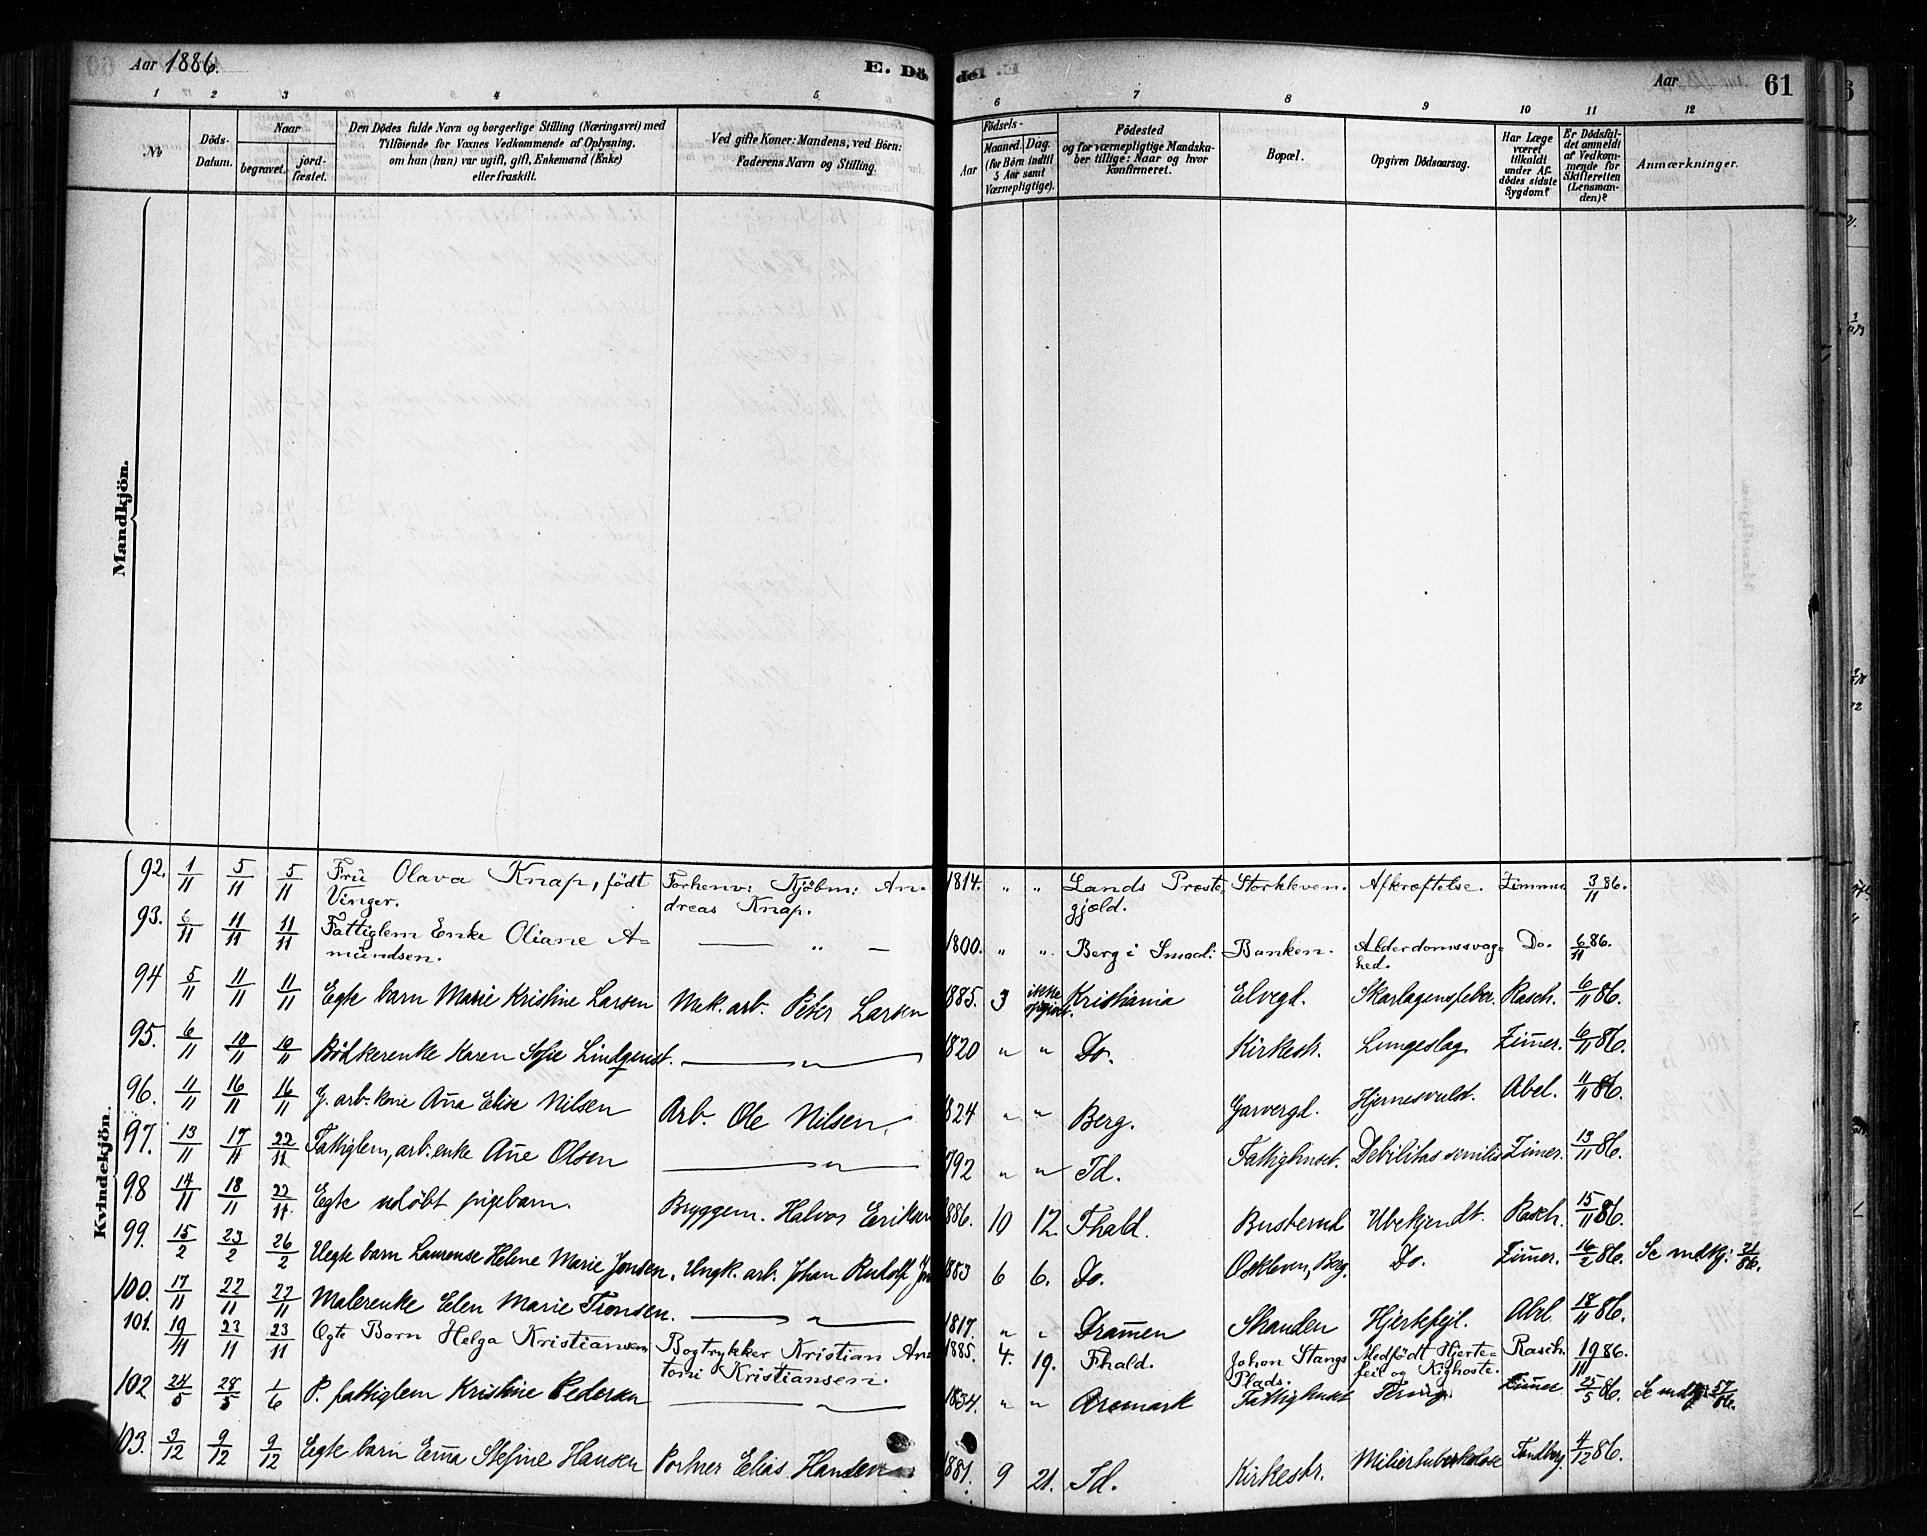 Aar 1886.
E. Dö
del
Aar 61
1 2 3 4 5 6 7 8 9 10 11 12
No
Döds-
Datum.
Naar
begravet.
jord-
fæstet.
Den Dödes fulde Navn og borgerlige Stilling (Næringsvei) med
Tilföiende for Voxnes Vedkommende af Oplysning,
om han (hun) var ugift, gift, Enkemand (Enke)
eller fraskilt.
Ved gifte Koner: Mandens, ved Börn:
Faderens Navn og Stilling.
Födsels-
Aar
Maaned. Dag.
(for Börn indtil
5 Aar samt
Værnepligtige).
Födested
og for værnepligtige Mandska-
ber tillige: Naar og hvor
konfirmeret.
Bopæl.
Opgiven Dödsaarsag.
Har Læge
været
tilkaldt
under Af-
dödes sidste
Sygdom?
Er Dödsfal-
det anmeldt
af Vedkom-
mende for
Skifteretten
(Lensman-
den)?
Anmærkninger.
Mandkjön.
Kvindekjön.
92. 1/11 5/11 5/11 Fru Olava Knap, født Forhenv: Kjøbm: An- 1814. " " Lands Præste- Storkleven. Afkræftelse. Zimmer 3/11 86.
Vinger. dreas Knap. gjæld.
93. 11/11 11/11 Fattiglem Enke Oliane A- — " — 1800. " " Berg i Smaal: Banken. Alderdomssvag- Do. 6/11 86.
mundsen. hed.
94 5/11 11/11 11/11 Egte barn Marie Kristine Larsen Mek. arb. Peter Larsen 1885. 3 ikke opgivet. Kristiania Elvegd. Skarlagensfeber. Rasch. 6/11 86.
95. 6/11 10/11 10/11 Bødkerenke Karen Sofie Lindqvist. — " — 1820 " " Do. Kirkestr. Lungeslag Zimer. 6/11 86.
96. 11/11 16/11 16/11 G. arb. kone Ana Elise Nilsen Arb. Ole Nilsen. 824 " " Berg. Garvergd. Hjernesvuld. Abel. 11/11 86.
97. 13/11 17/11 22/11 Fattiglem, arb. enke Ane Olsen — " — 792 " " Id. Fattighuset. Debilitas senilis Zimer. 13/11 86.
98 14/11 18/11 22/11 Egte udøbt pigebarn. Bryggem. Halvor Eriksen 886. 10 12. Fhald. Busterud Ubekjendt. Rasch. 15/11 86.
99. 15/2 23/2 26/2 Uegte barn Laurense Helene Marie Jonsen. Ungk. arb. Johan Rudolf 883 6 6. Do. Oskleven, Berg. Do. Zimer. 16/2 86. Se mdkj: 21/86.
100. 17/11 22/11 22/11 Malerenke Elen Marie Tronsen. — " — 1817. " " Dramen Skanden Hjertefejl. Abel 18/11 86.
101. 19/11 23/11 23/11 Egte Barn Helga Kristiansen Bogtrykker Kristian An- 1885. 4. 19. Fhald. Johan Stangs Medfødt Hjerte- Rasch. 19/11 86.
toni Kristiansen. Plads. feil og Kighoste.
102 24/5 28/5 1/6 P. fattiglem Kristine Pedersen — " — 1834. " " Aremark Fattighuset Zimer 25/5 86. Se mdkj 57/86.
103. 3/12 9/12 9/12 Egte barn Ema Stefine Hansen Portner Elias Hansen 881. 9 21. Id. Kirkestr. Miliertuberkulose Tandberg. 4/12 86.